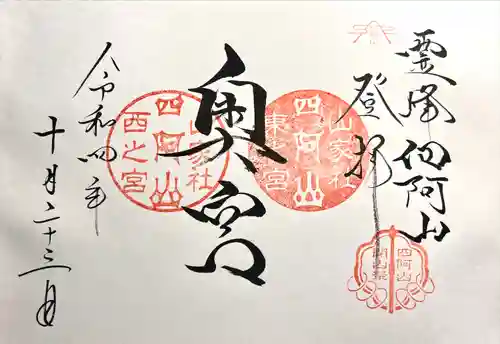 霊峰四阿山
登拝
奥宮
山家社
四阿山
東之宮
山家社
四阿山
西之宮
四阿山
令和四年
十月二十三日